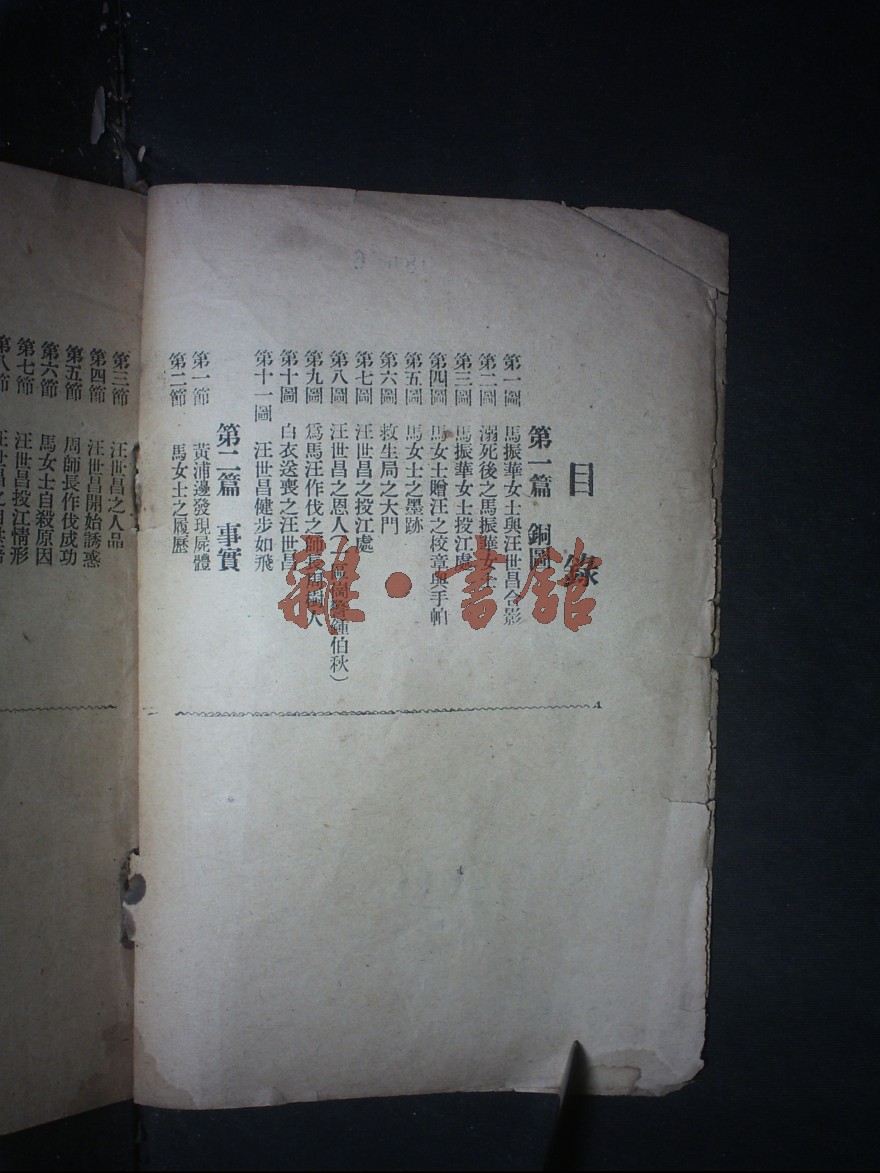 目錄
第一篇 銅圖
第一圖 馬振華女士與汪世昌合影
第二圖 溺死後之馬振華女士
第三圖 馬振華女士投江處
第四圖 馬女士贈汪之校章與手帕
第五圖 馬女士之墨跡
第六圖 救生局之大門
第七圖 汪世昌之投江處
第八圖 汪世昌之恩人(一區崗警鍾伯秋)
第九圖 爲馬汪作伐之師長周樹人
第十圖 白衣送喪之汪世昌
第十一圖 汪世昌健步如飛
第二篇 事實
第一節 黃浦邊發現屍體
第二節 馬女士之履歷
第三節 汪世昌之人品
第四節 汪世昌開始誘惑
第五節 周師長作伐成功
第六節 馬女士自殺原因
第七節 汪世昌投江情形
第八節 汪世昌之自
雜·書館